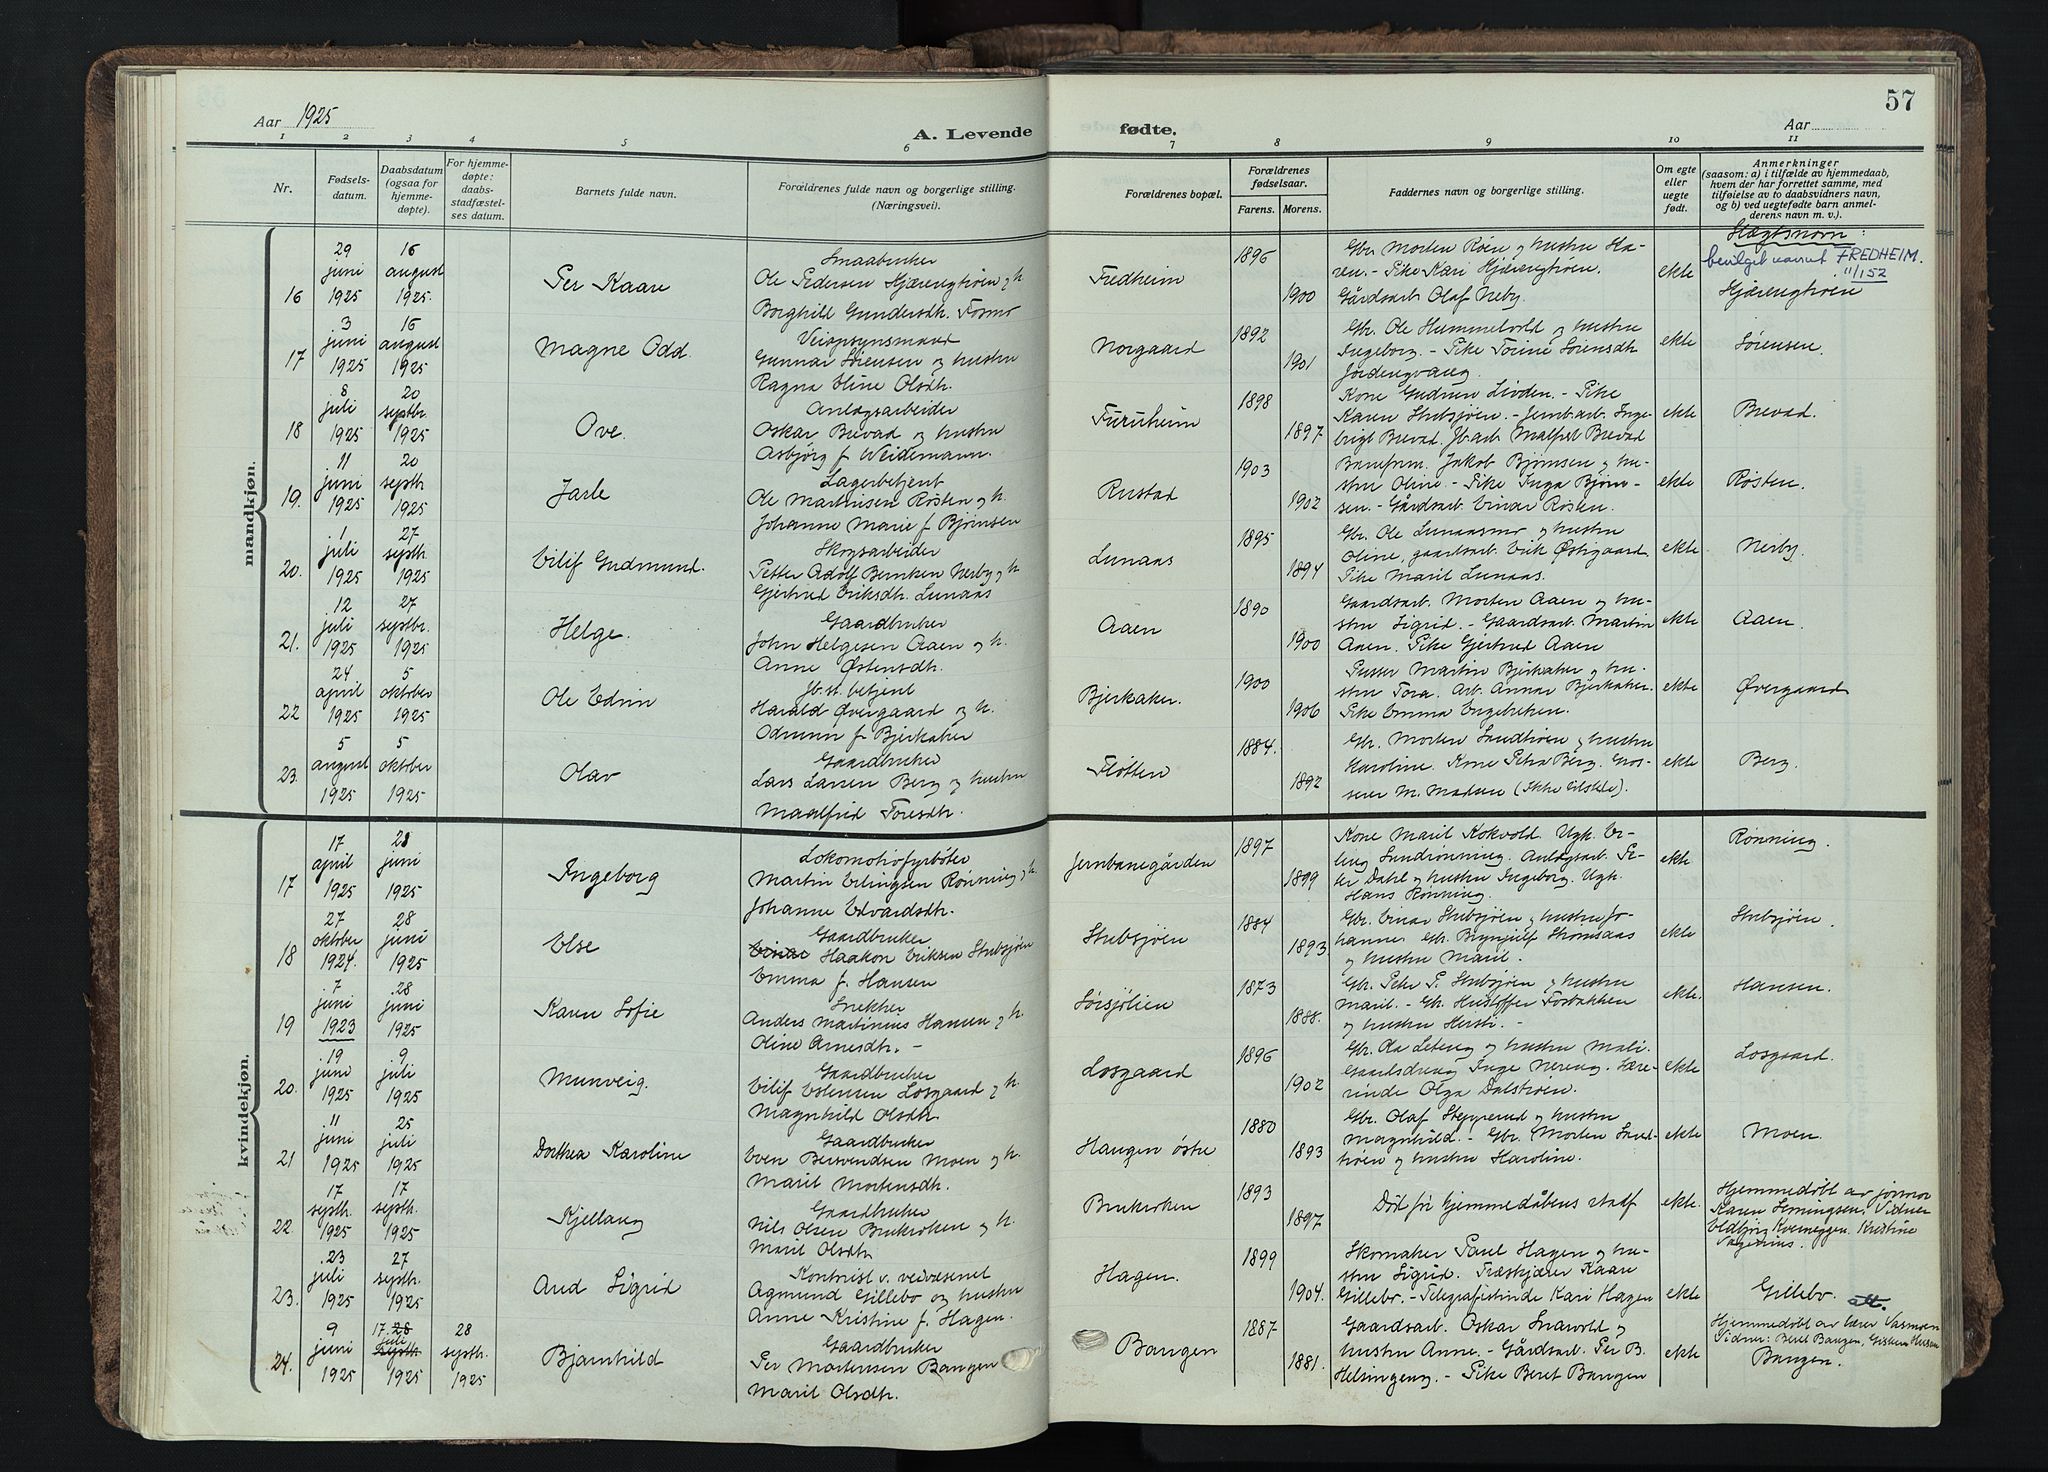 57
Aar 1925
A. Levende
fødte.
Aar
1 2 3 4 5 6 7 8 9 10 11
Nr.
Fødsels-
datum.
Daabsdatum
(ogsaa for
hjemme-
døpte).
For hjemme-
døpte:
daabs-
stadfæstel-
ses datum.
Barnets fulde navn.
Forældrenes fulde navn og borgerlige stilling.
(Næringsvei).
Forældrenes bopæl.
Forældrenes
fødselsaar.
Farens. Morens.
Faddernes navn og borgerlige stilling.
Om egte
eller
uegte
født.
Anmerkninger
(saasom: a) i tilfælde av hjemmedaab,
hvem der har forrettet samme, med
tilføielse av to daabsvidners navn,
og b) ved uegtefødte barn anmel-
derens navn m. v.).
Slægtsnavn:
mandkjøn.
16
29
juni
1925
16
august
1925.
Per Kaare
Smaabruker
Ole Pedersen Hjærengtrøen og h
Borghild Gundersdtr. Fosmo
Fredheim
1896
1900
Gbr. Morten Røen og hustru Ka-
ren. - Pike Kari Hjærengtrøen.
Gårdsarb. Olaf Neby.
ekte
bevilget navnet FREDHEIM.
11/1 52
Hjærengtrøen
17
3
juni
1925
16
august
1925
Magne Odd.
Veiopsynsmand
Gunnar Sørensen og hustru
Ragna Eline Olsdtr.
Norgaard
1892
1901
Gbr. Ole Hummelvold og hustru
Ingeborg. - Pike Torine Sørensdtr
Jordengvang.
ekte
Sørensen.
18
8
juli
1925
20
septbr.
1925
Ove.
Anlægsarbeider
Oskar Brevad og hustru
Asbjørg f. Weidemann.
Furuheim
1898
1897
Kone Gudrun Livden. - Pike
Karen Stubsjøen. - Jernb.arb. Inge-
brigt Brevad. Jb.arb. Malfret Brevad
ekte
Brevad.
19.
11
juni
1925
20
septb.
1925
Jarle
Lagerbetjent
Ole Martinisen Røsten og h.
Johanne Marie f. Bjørnsen
Rustad
1903
1902
Baneform. Jakob Bjørnsen og hu-
stru Oline. - Pike Inga Bjørn-
sen. - Gårdsarb. Einar Røsten.
ekte
Røsten.
20.
1
juli
1925
27
septb.
1925
Eilif Gudmund.
Skogsarbeider
Petter Adolf Berntsen Nerby og h
Gjertrud Eriksdtr. Lunaas
Lunaas
1895
1894
Gbr. Ole Lunaasmo og hustru
Oline, gaardsarb. Erik Østgaard
Pike Marit Lunaas.
ekte
Nerby.
21.
12
juli
1925
27
septbr.
1925
Helge.
Gaardbruker
John Helgesen Aaen og h.
Anne Østensdtr.
Aaen
1890
1900
Gaardsarb. Morten Aaen og hu-
stru Sigrid. - Gaardsarb. Martin
Aaen. Pike Gjertrud Aaen
ekte
Aaen.
22
24
april
1925
5
oktober
1925
Ole Edvin
Jb.st. betjent
Harald Øvergaard og h.
Odrunn f. Bjerkaker
Bjerkaker.
1900
1906
Pusser Martin Bjerkaker og hu-
stru Tora. Arb. Annar Bjerkaker.
Pike Emma Engebretsen.
ekte
Øvergaard
23.
5
august
1925
5
oktober
1925
Olav
Gaardbruker
Lars Larsen Berg og hustru
Maalfrid Toresdtr.
Fløtten
1884.
1892
Gbr. Morten Sundtrøen og hustru
Karoline. Kone Petra Berg. Gros-
serer M. Madsen (ikke tilstede).
ekte
Berg.
kvindekjøn.
17
17
april
1925
21
juni
1925
Ingeborg
Lokomotivfyrbøter
Martin Erlingsen Rønning og h.
Johanne Edvardsdtr.
Jernbanegården
1897
1899
Kone Marit Kokvold. Ugk. Er-
ling Sundrønning. Anlægsarb. Pe-
ter Dahl og hustru Ingeborg. Ugk.
Hans Rønning.
ekte
Rønning.
18
27
oktober
1924.
28
juni
1925
Else
Gaardbruker
Einar Haakon Eriksen Stubsjøen
Emma f. Hansen
Stubsjøen
1884
1893
Gbr. Einar Stubsjøen og hustru Jo-
hanne. Gbr. Brynjulf Stromsaas
og hustru Marit.
ekte
Stubsjøen
19
7
juni
1923
28
juni
1925
Karen Sofie
Snekker
Anders Martinius Hansen og h.
Oline Arnesdtr. -
Sørsjølien
1873
1888.
Gbr. Peter P. Stubsjøen og hustru
Marit. - Gbr. Kristoffer Fosbakken
og hustru Kersti. -
ekte.
Hansen.
20.
19
juni
1925
9
juli
1925
Munveig.
Gaardbruker
Eilif Estensen Losgaard og h.
Magnhild Olsdtr.
Losgaard
1896
1902
Gbr. Ola Leteng og hustru Mali.
Gaardsdreng Inge Nereng. Lære-
rinde Olga Dalstrøen.
ekte
Losgaard.
21
11
juni
1925
25
juli
1925
Dorthea Karoline
Gaardbruker
Even Bersvendsen Moen og h.
Marit Mortensdtr.
Haugen østre
1880
1893
Gbr. Olaf Steggerud og hustru
Magnhild. - Gbr. Morten Sund-
trøen og hustru Karoline.
ekte
Moen.
22
17
septb.
1925
17
septb.
1925
Kjellaug
Gaardbruker
Nils Olsen Brukroken og h.
Marit Olsdtr
Brukroken
1893
1897
Død før hjemmedåbens stadf
ekte.
Hjemmedøbt av jormor
Karen Hemingsen. Vidner
Eldbjørg Kverneggen. Kristine
23.
23
juli
1925
27
septb.
1925
Aud Sigrid
Kontorist v. veivæsenet
Agmund Gillebo og hustru
Anne Kristine f. Hagen.
Hagen.
1899
1904.
Skomaker Paul Hagen og hu-
stru Sigrid. Træskjærer Kaare
Gillebo. - Telegrafistinde Kari Hagen
ekte
Gillebo.
att.
24.
9
juni
1925
17. 28
juli
septb.
1925
28
septb.
1925
Bjarnhild
Gaardbruker
Per Mortensen Bangen
Marit Olsdtr.
Bangen
1887
1881.
Gaardsarb. Oskar Snavold og
hustru Anne. - Gårdsarb. Per B.
Helsingeng. - Pike Beret Bangen
ekte
Hjemmedøbt av lærer Vasmoen
Vidner: Beret Bangen,
Bangen.